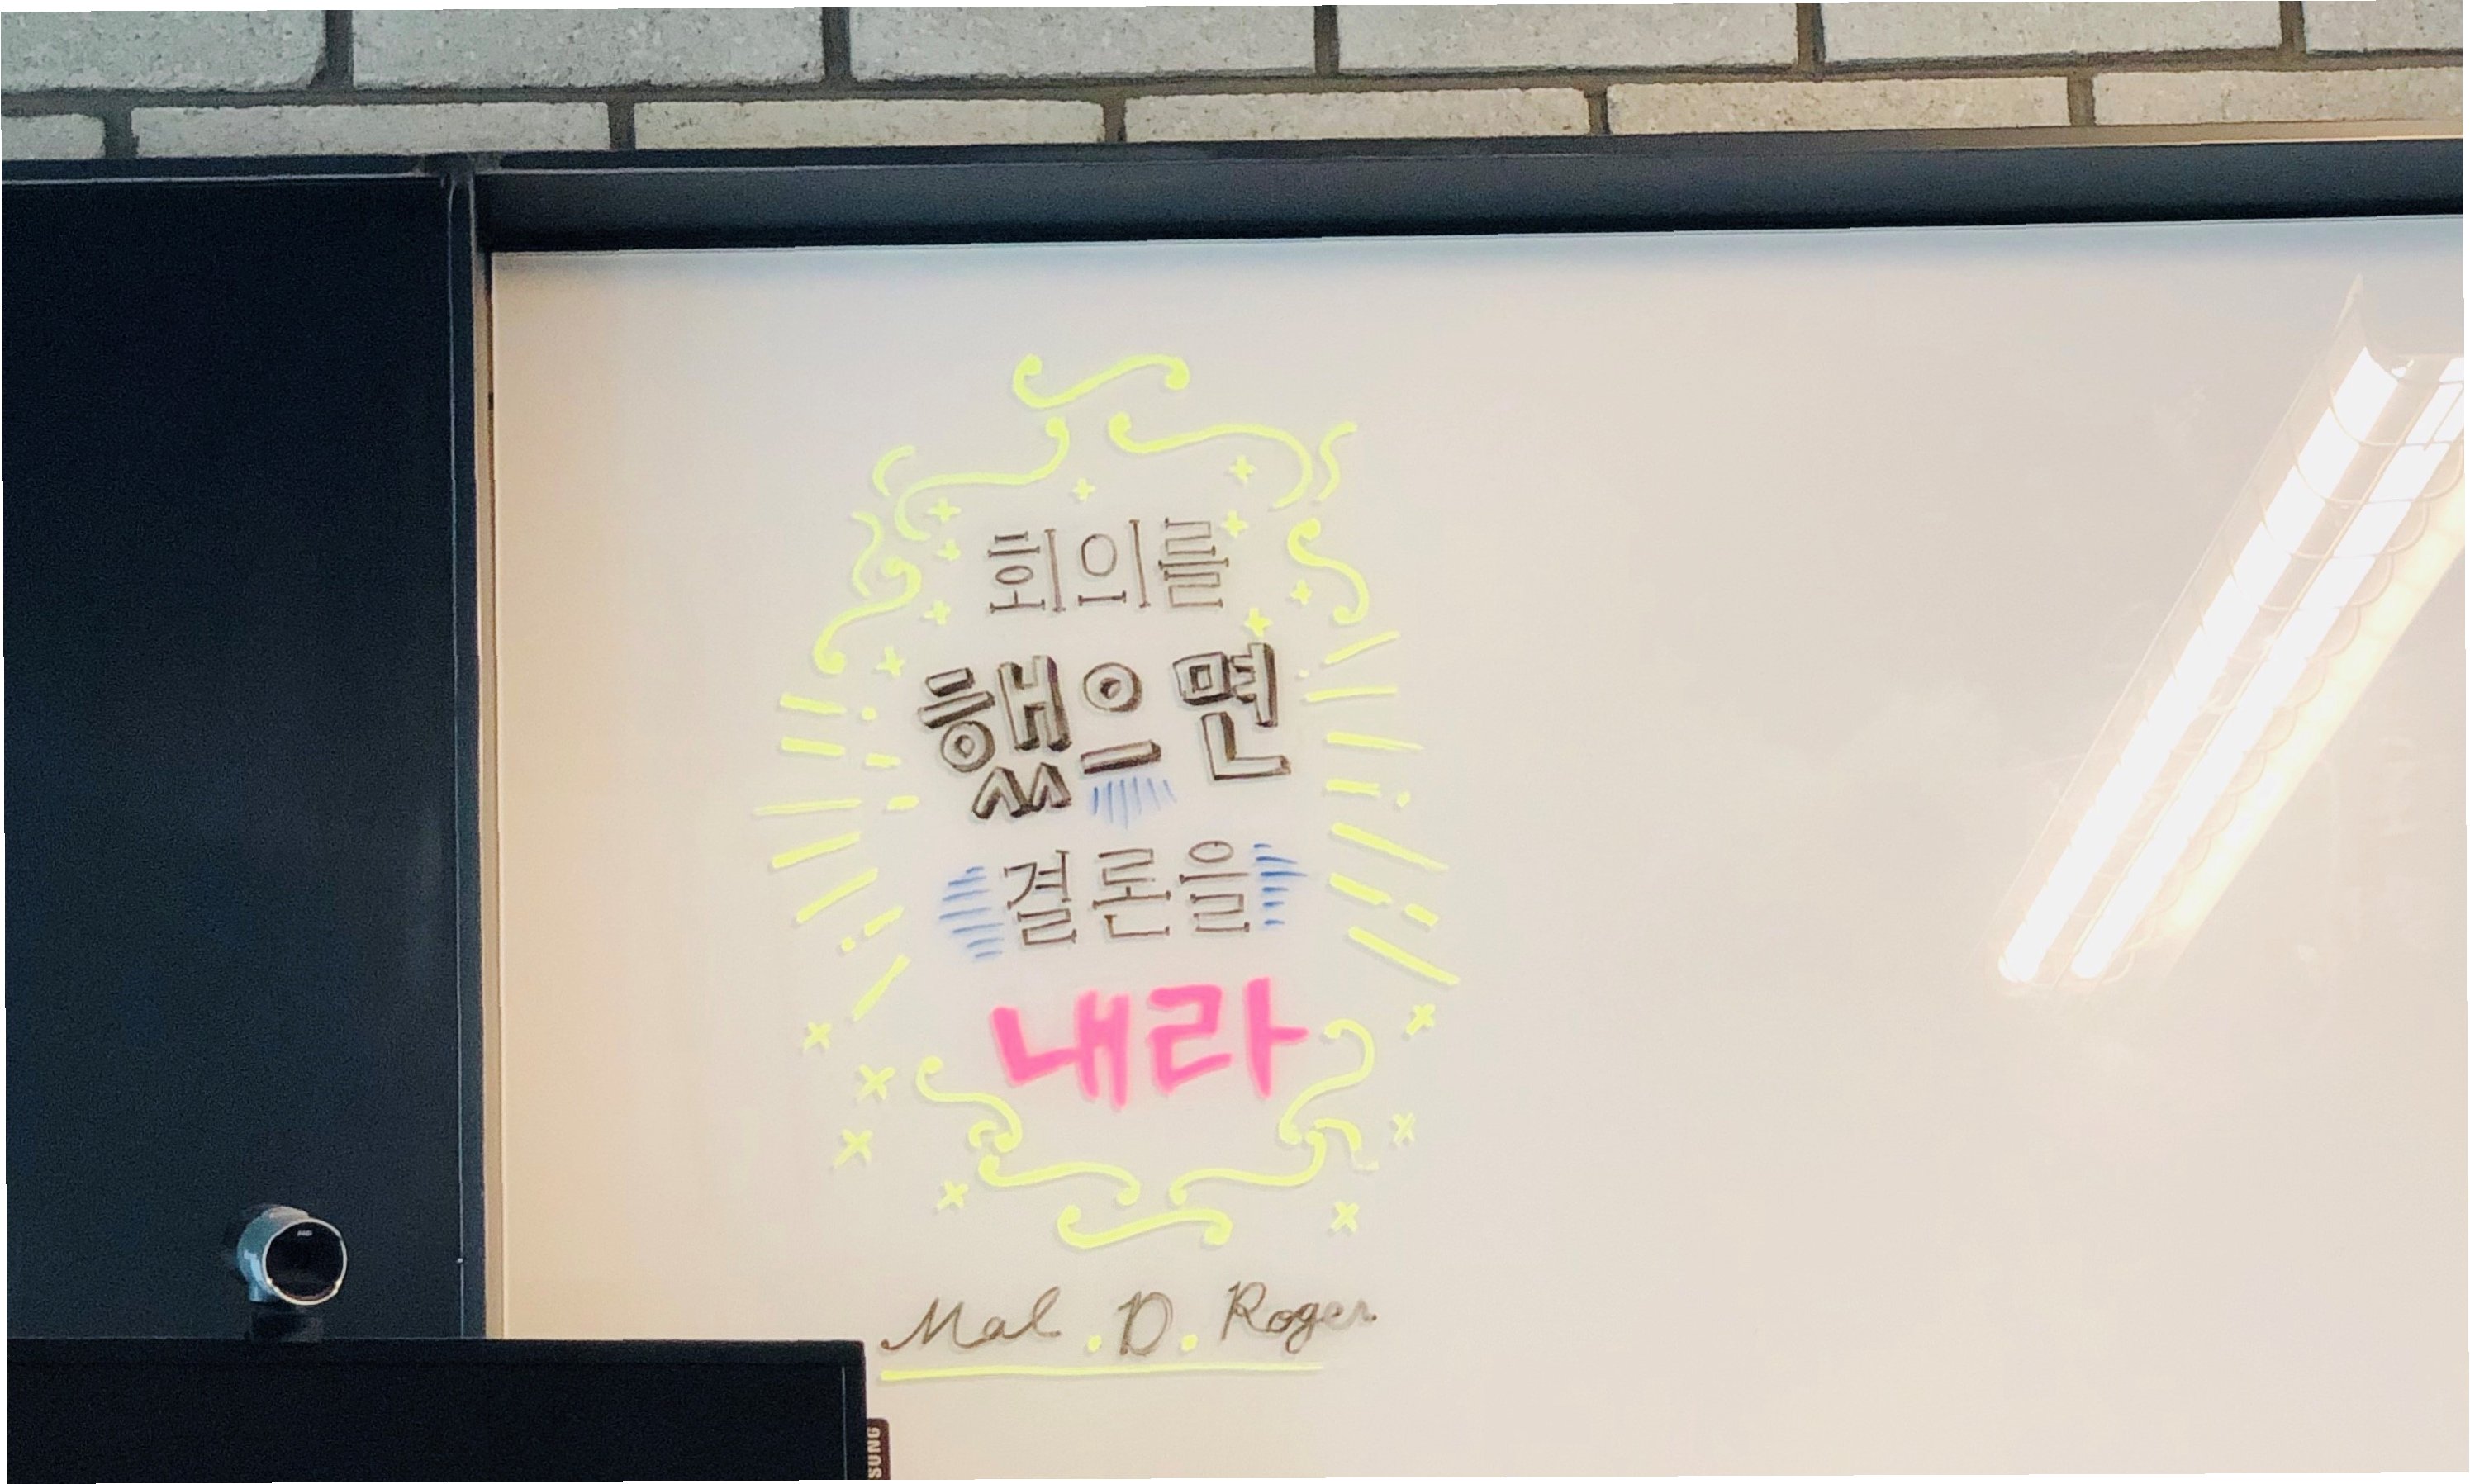 회의를
했으면
결론을
내라
Mal . D. Roger
SUNG